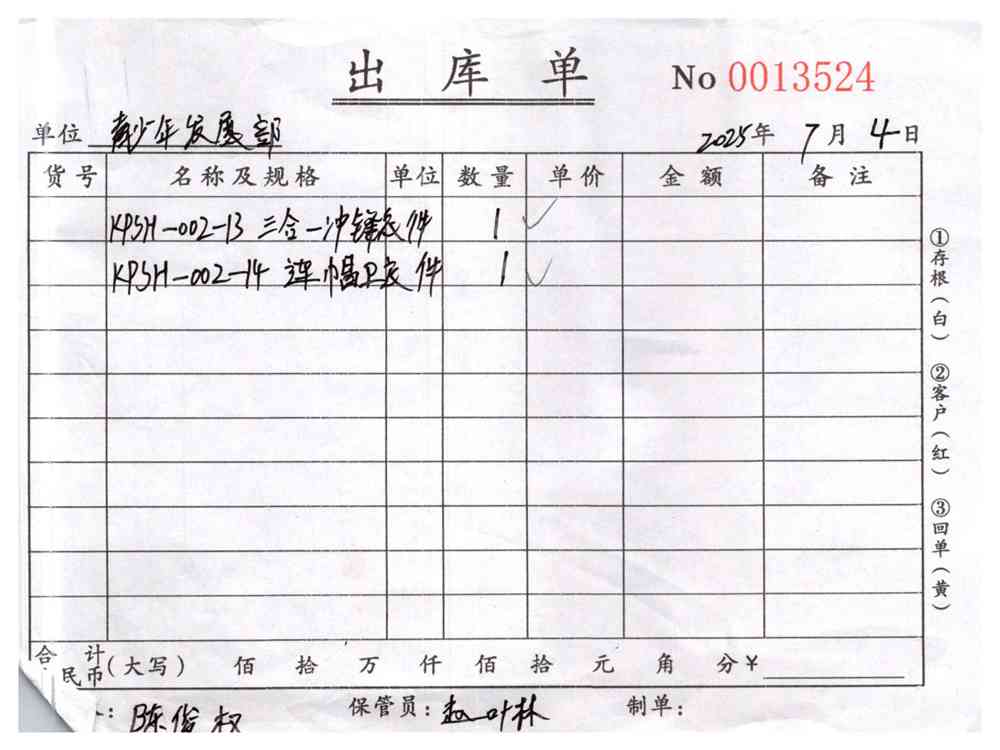 出库单 No 0013524
单位 青少年发展部 2025年 7月 4日
货号 名称及规格 单位 数量 单价 金额 备注
KPSH-002-13 三合一冲锋衣 件 1 ✓
KPSH-002-14 连帽卫衣 件 1 ✓
合计 民币(大写) 佰 拾 万 仟 佰 拾 元 角 分 ¥
: 陈俊权 保管员: 赵叶林 制单:
①存根(白) ②客户(红) ③回单(黄)